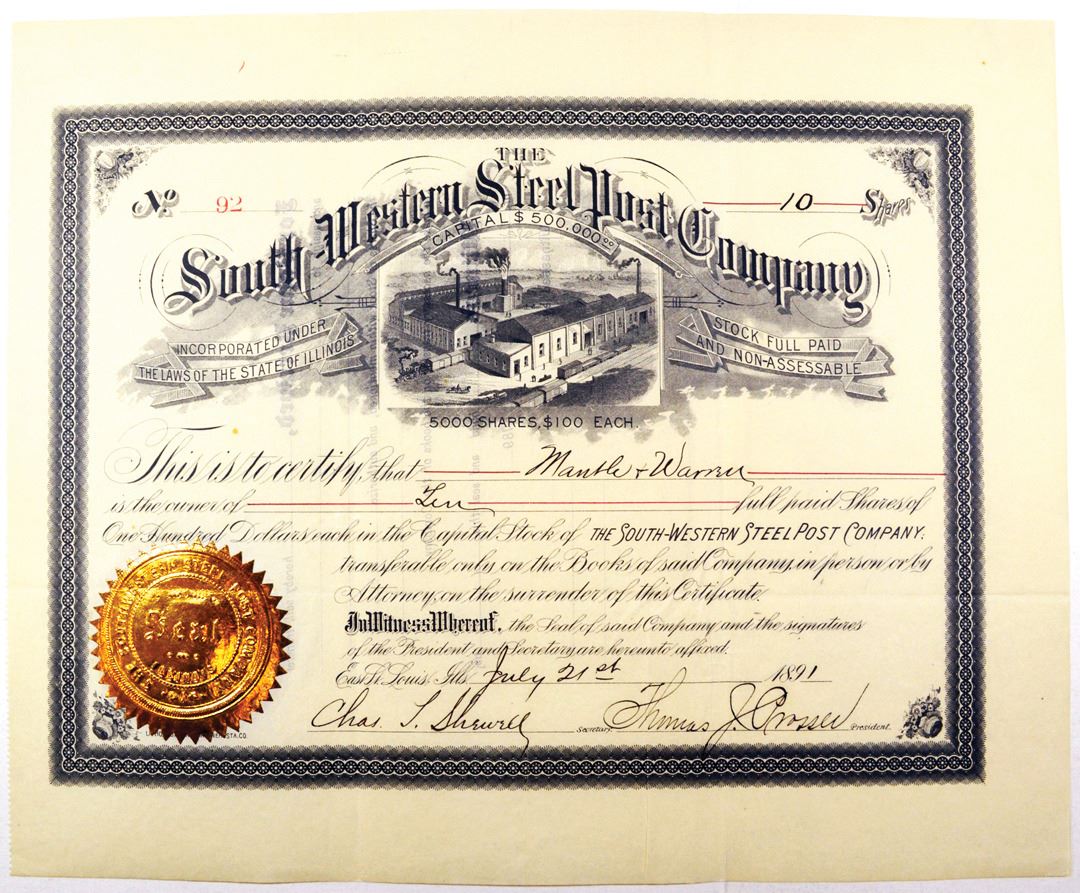 THE
South-Western Steel Post Company
No 92
10 Shares
CAPITAL $500,000.00
INCORPORATED UNDER
THE LAWS OF THE STATE OF ILLINOIS
STOCK FULL PAID
AND NON-ASSESSABLE
5000 SHARES, $100 EACH.
This is to certify, that Mantle & Warren
is the owner of Ten full paid Shares of
One Hundred Dollars each in the Capital Stock of THE SOUTH-WESTERN STEEL POST COMPANY,
transferable only on the Books of said Company, in person or by
Attorney, on the surrender of this Certificate.
In Witness Whereof, the Seal of said Company and the signatures
of the President and Secretary are hereunto affixed.
East St. Louis, Ills. July 21st 1891
Chas. T. Shewell Secretary. Thomas J. Prosser President.
Seal
STA. CO.